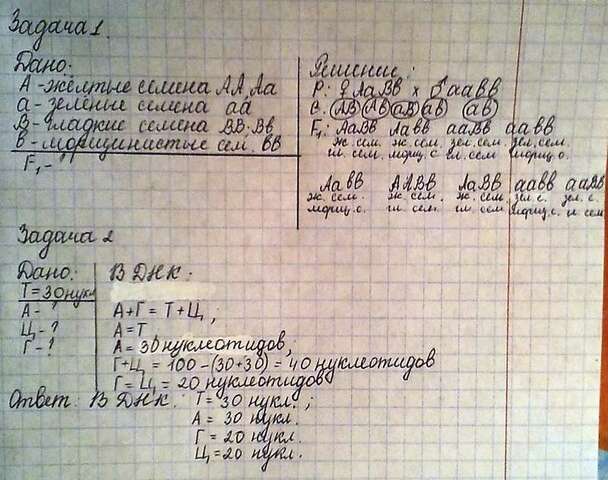 Задача 1.
Дано:
А - жёлтые семена АА, Аа
а - зелёные семена аа
В - гладкие семена ВВ; Вв
в - морщинистые сем. вв
F₁ - ?
Решение:
Р: ♀ АаВв х ♂ аавв
G: АВ Ав аВ ав ав
F₁: АаВв Аавв ааВв аавв
ж. сем. ж. сем. зел. сем. зел. сем.
гл. сем. морщ. с гл. сем морщ. с.
Аавв ААВв АаВв аавв ааВв
ж. сем. ж. сем. ж. сем. зел. с. зел. с.
морщ. с. гл. сем. гл. сем. морщ. с. гл. сем
Задача 2
Дано:
Т = 30 нукл
А - ?
Ц - ?
Г - ?
В ДНК:
А+Г = Т+Ц;
А = Т
А = 30 нуклеотидов;
Г+Ц = 100 - (30+30) = 40 нуклеотидов
Г = Ц = 20 нуклеотидов
Ответ: В ДНК: Т = 30 нукл.;
А = 30 нукл.
Г = 20 нукл.
Ц = 20 нукл.